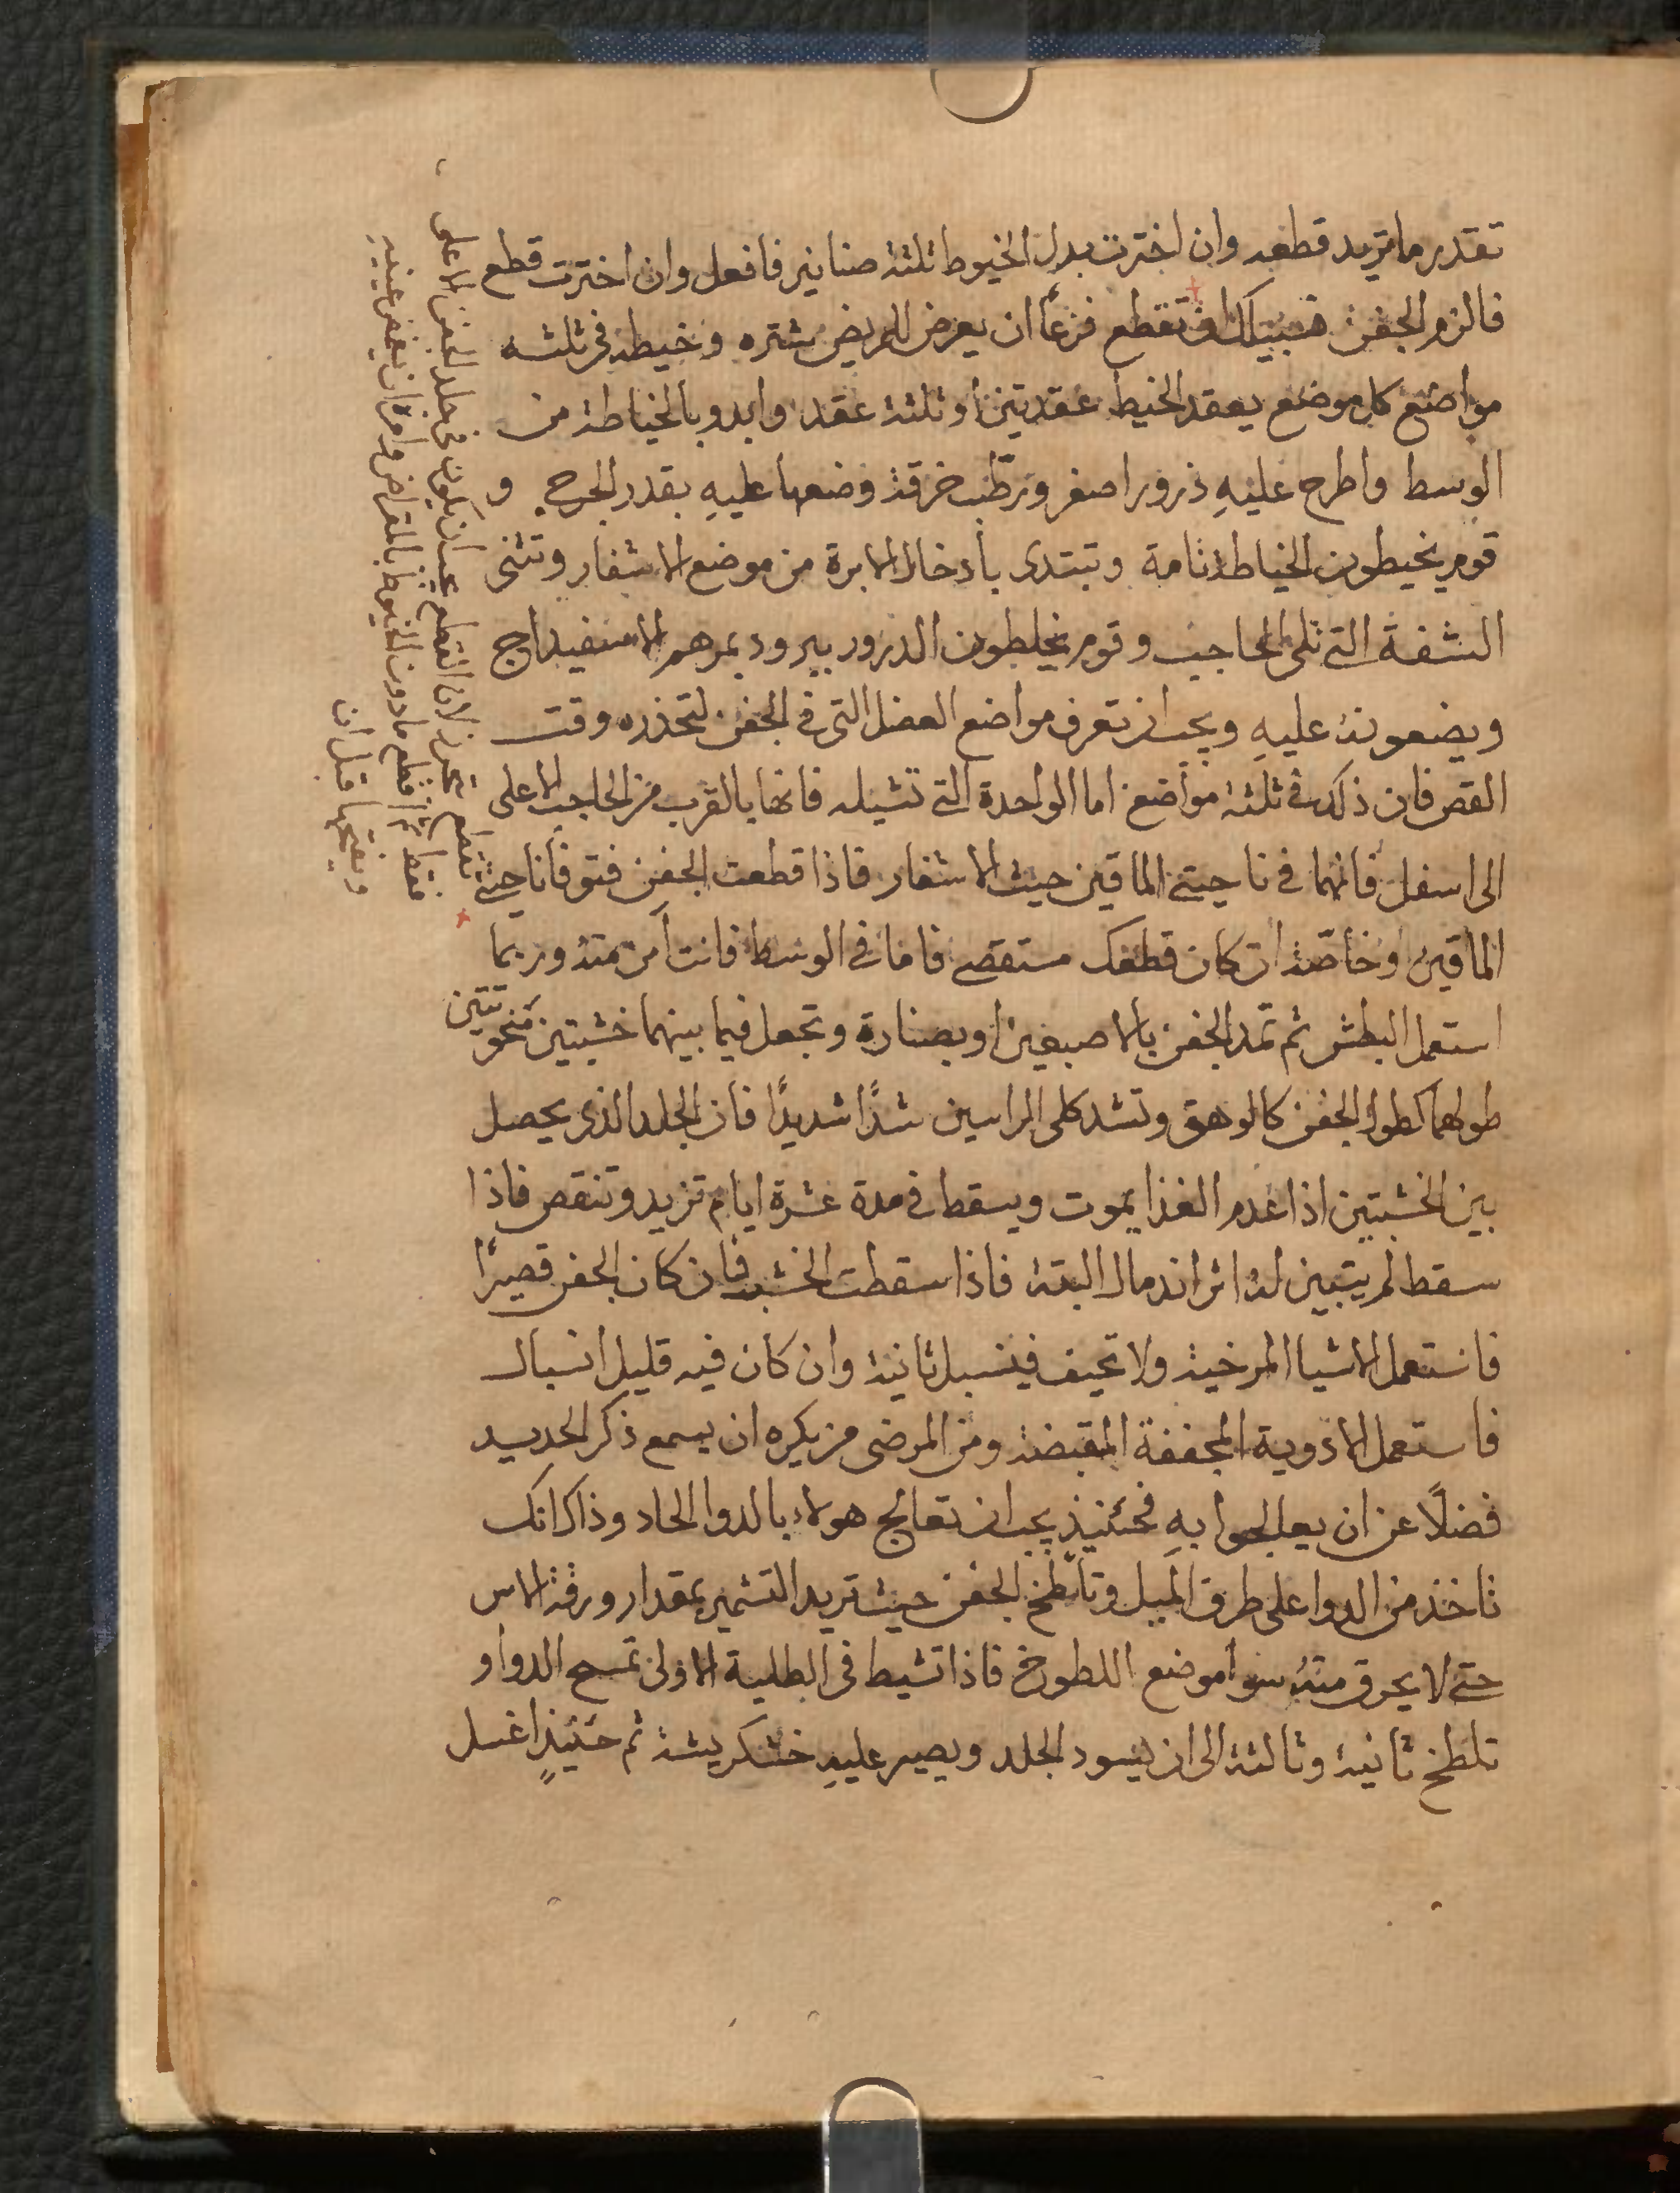 تقدر ما تريد قطعه وان اخترت بدل الخيوط ثلثة صنانير فافعل وان اخترت قطع
فالزم الجفن تقطع فزعاً ان يعرض للمريض شتره وخيطه في ثلثه
مواضع كل موضع يعقد الخيط عقدتين او ثلثة عقد وابدو بالخياطة من
الوسط واطرح عليهِ ذرورا اصفر وترطّب خرقة وضعها عليهِ بقدر الجرح و
قوم يخيطون الخياطة تامة وتبتدى بادخال الابرة من موضع الاشفار وتثنى
الشفة التى تلى الحاجب وقوم يخلطون الذرور ببرود بمرهم الاسفيداج
ويضعونه عليهِ ويجب ان تعرف مواضع العضل التى فى الجفن لتحذره وقت
القص فان ذلك فى ثلثة مواضع اما الواحدة التى تشيله فانها بالقرب من الحاجب الاعلى
الى اسفل فانهما فى ناحيتى الماقين حيث الاشفار فاذا قطعت الجفن فتوقا ناحيتى
الماقين وخاصّة ان كان قطعك مستقصى فاما فى الوسط فانت آمن منه وربما
استعمل البطش ثم تمد الجفن بالاصبعين او بصنارة وتجعل فيما بينهما خشبتين منحوتتين
طولهما كطول الجفن كالوهق وتشد كلى الراسين شدًا شديدًا فان الجلد الذى يحصل
بين الخشبتين اذا عدم الغذا يموت ويسقط فى مدة عشرة ايام تزيد وتنقص فاذا
سقط لم يتبين له اثر اندمال البتة فاذا سقطت الخشبه فان كان الجفن قصيرًا
فاستعمل الاشيا المرخية ولا تحيف فينسبل ثانية وان كان فيه قليل انسبال
فاستعمل الادوية المجففة المقبضة ومن المرضى من يكره ان يسمع ذكر الحديد
فضلًا عن ان يعالجوا بهِ فحئنيذٍ يجب ان تعالج هولاء بالدوا الحاد وذاك انك
تاخذ من الدوا على طرف الميل وتلطخ الجفن حيث تريد التشمير بمقدار ورقة الاس
حتى لا يحرق منه سوا موضع اللطوخ فاذا تشيط فى الطلية الاولى تمسح الدوا و
تلطخ ثانية وثالثة الى ان يسود الجلد ويصير عليهِ خشكريشة ثم حئنيذٍ اغسل
تقطع لان القطع يجب ان يكون فى جلد الجفن الاعلى
فقط ثم اقطع ما دون الخيوط بالمقراض وامره ان يغمض عينيه
ويفتحها قبل ان